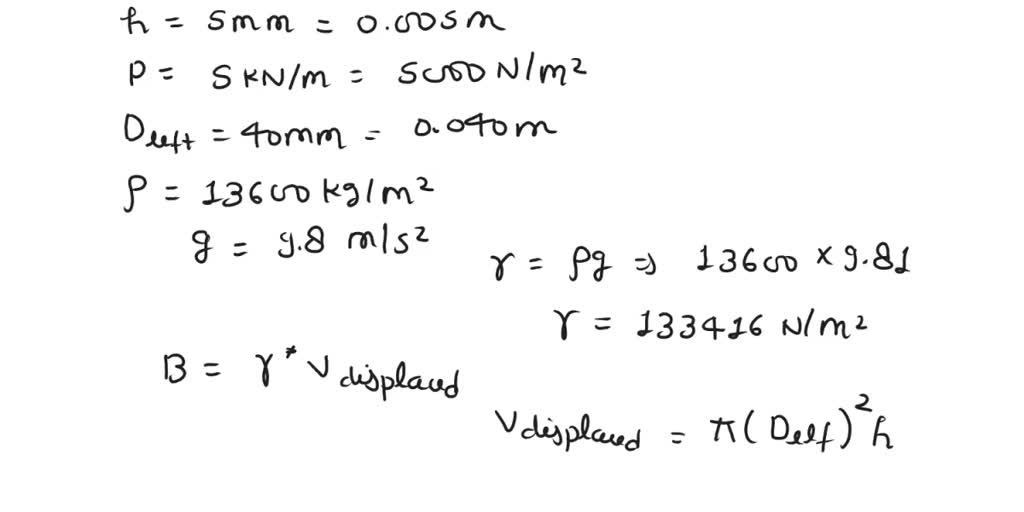 h = 5mm = 0.005m
P = 5 KN/m = 5000 N/m²
D left = 40mm = 0.040m
ρ = 13600 kg/m²
g = 9.8 m/s²
γ = ρg ⇒ 13600 × 9.81
γ = 133416 N/m²
B = γ * V displaced
V displaced = π(D left)² h